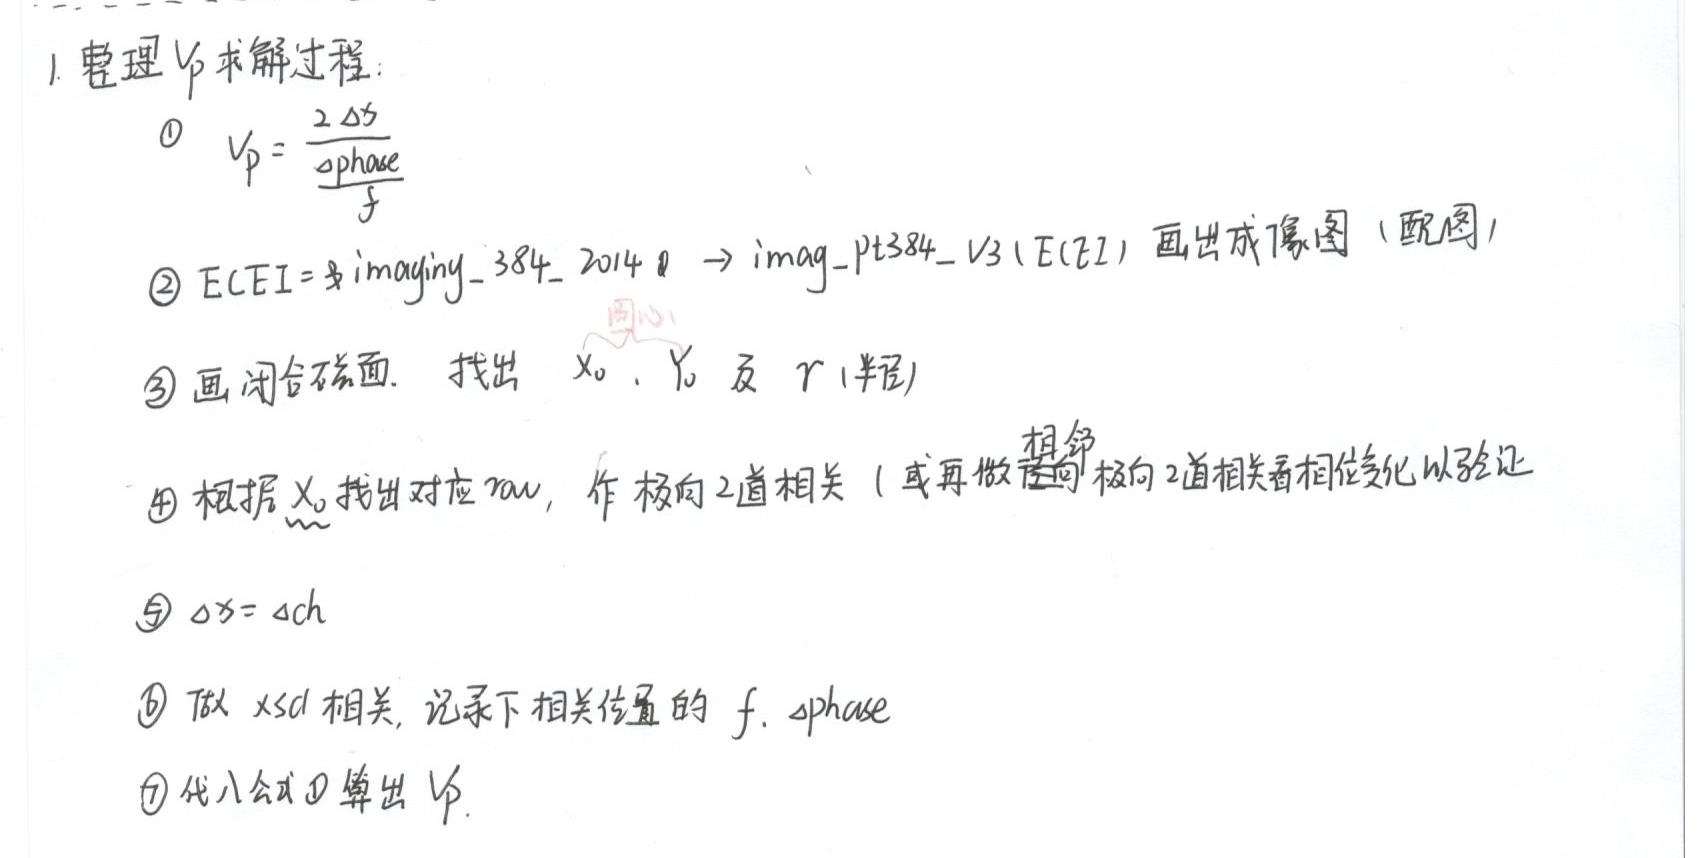 1. 整理 Vp 求解过程:
① Vp = 2Δx / (Δphase / f)
② ECEI = imaging_384_2014 → imag_pt384_V3(ECEI) 画出成像图(配图)
圆心
③ 画闭合磁面. 找出 X₀、Y₀ 及 r (半径)
相邻
④ 根据 X₀ 找出对应 row, 作极向2道相关 (或再做 极向2道相关看相位变化以验证
⑤ Δx = Δch
⑥ 做 xsd 相关, 记录下相关位置的 f. Δphase
⑦ 代入公式① 算出 Vp.